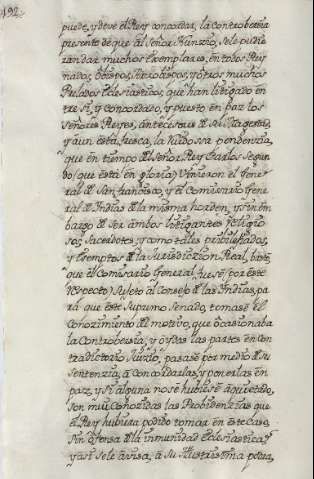 192.
puede, y deve el Rey concordar, la controbersia
presente de que al Señor Nunzio, se le pudie
ran dar muchos exemplares, en todos Rey
nados, obispos, Arzobispos, y otros muchos
Prelados Eclesiasticos, que han litigado en
tre si, y concordado, y puesto en paz los
Señores Reyes, antecesores de Su Magestad,
y aun està fresca, la Ruidossa pendencia,
que en tiempo del Señor Rey Carlos Segun
do (que està en gloria) Vinieron el Gene
ral de San francisco, y el Comisario Gene
ral de Indias de la misma horden, y sin em
bargo de Ser ambos litigantes Religio
sos, Sacerdotes, y como tales privilegiados,
y exemptos de la Jurisdiccion Real, bastò
que el Comisario General, fuese (por este
respecto) Sujeto al Consejo de las Indias, pa
ra que este Supremo Senado, tomase el
Conozimiento del motivo, que ocasionaba
la Controbersia, y oydas las partes en con
tradictorio Juizio, pasase por medio de su
Sentenzia, à concordarlas, y ponerlas en
paz, y si alguna no se hubiese aquietado,
Son mui conozidas las Probidenzias que
el Rey hubiera podido tomar en este caso,
Sin ofensa de la inmunidad Eclesiastica,
y asi se le avisa, à Su Illustrissima para,